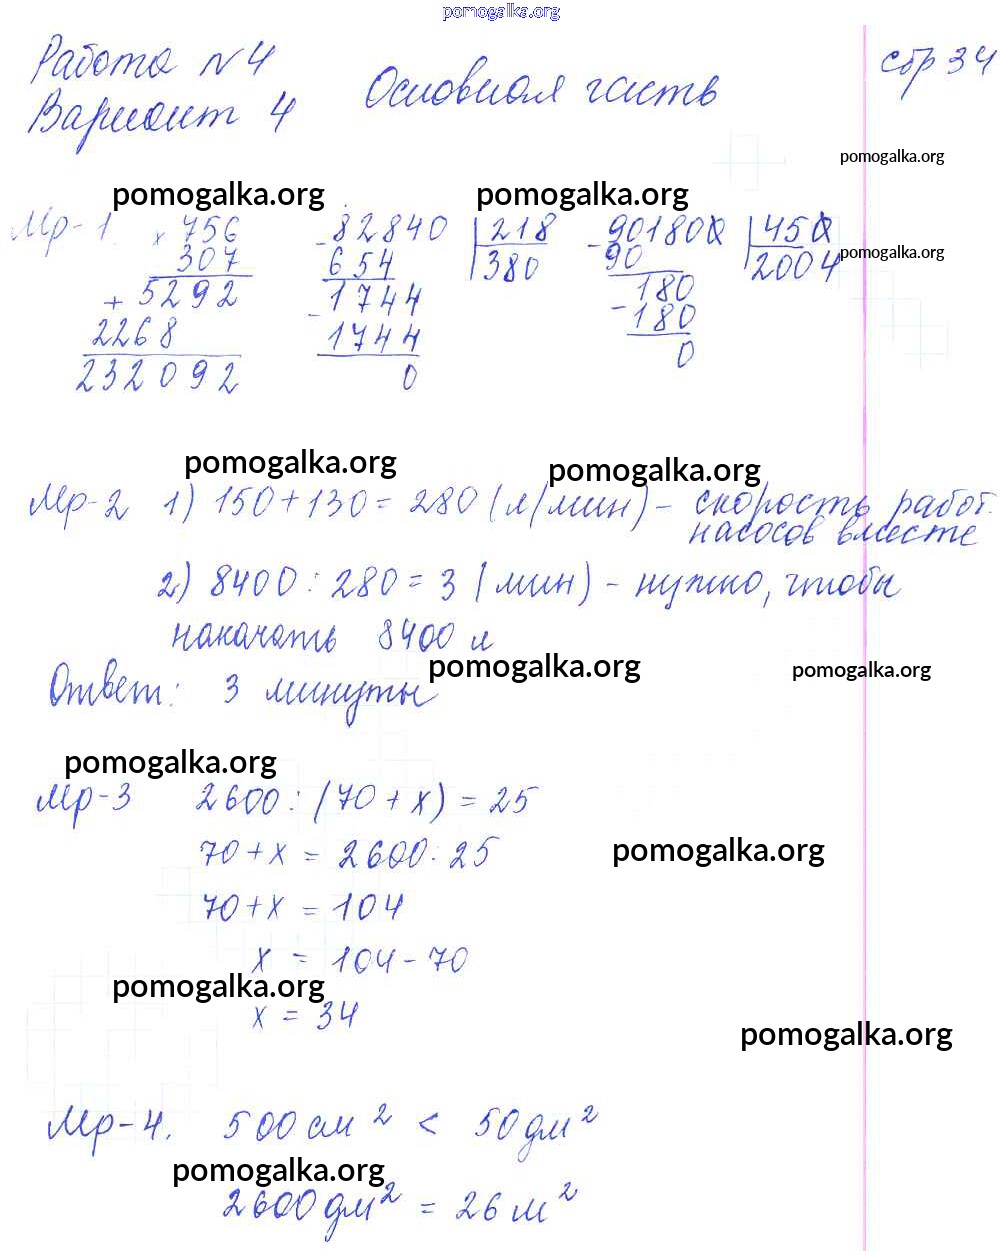 pomogalka.org
Работа №4
стр 34
Вариант 4 Основная часть
pomogalka.org
pomogalka.org pomogalka.org
Мр-1. × 756 - 82840 | 218 - 901800 | 450
307 654 380 90 2004
pomogalka.org
+ 5292 - 1744 180
2268 1744 - 180
232092 0 0
pomogalka.org pomogalka.org
Мр-2 1) 150 + 130 = 280 (л/мин) - скорость работ.
насосов вместе
2) 8400 : 280 = 3 (мин) - нужно, чтобы
накачать 8400 л
pomogalka.org pomogalka.org
Ответ: 3 минуты
pomogalka.org
Мр-3 2600 : (70 + x) = 25
70 + x = 2600 : 25
pomogalka.org
70 + x = 104
x = 104 - 70
pomogalka.org
x = 34
pomogalka.org
Мр-4. 500 см² < 50 дм²
pomogalka.org
2600 дм² = 26 м²